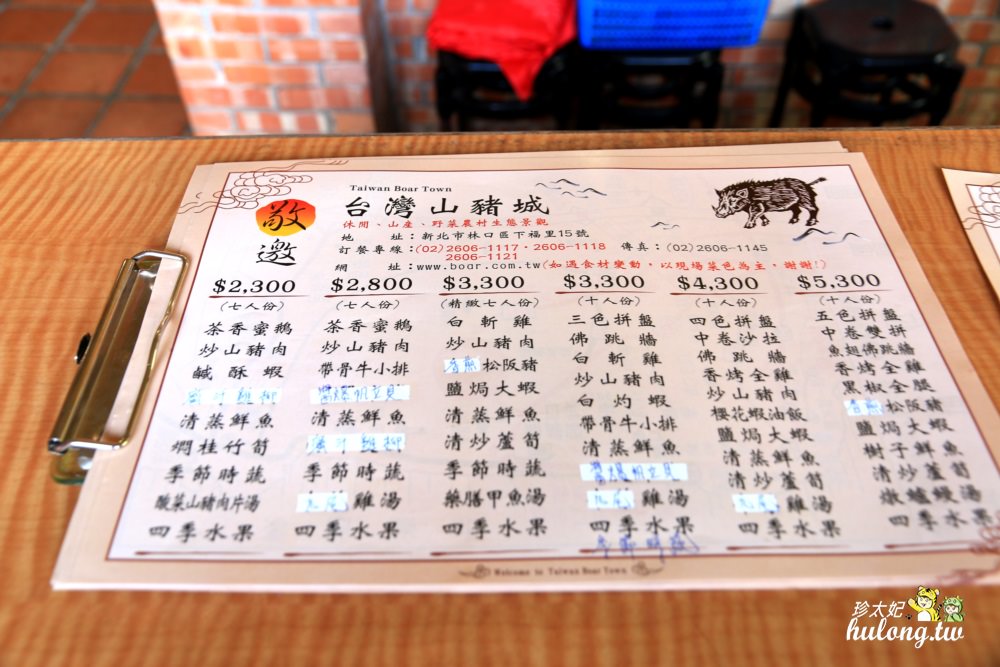 Taiwan Boar Town
敬邀
台灣山豬城
休閒、山產、野菜農村生態景觀
地 址：新北市林口區下福里15號
訂餐專線：(02)2606-1117・2606-1118 傳真：(02)2606-1145
2606-1121
網 址：www.boar.com.tw(如遇食材變動，以現場菜色為主，謝謝!)
$2,300
(七人份)
茶香蜜鵝
炒山豬肉
鹹酥蝦
清蒸鮮魚
燜桂竹筍
季節時蔬
酸菜山豬肉片湯
四季水果
$2,800
(七人份)
茶香蜜鵝
炒山豬肉
帶骨牛小排
醬爆帆立貝
清蒸鮮魚
季節時蔬
雞湯
四季水果
$3,300
(精緻七人份)
白斬雞
炒山豬肉
香煎松阪豬
鹽焗大蝦
清蒸鮮魚
清炒蘆筍
季節時蔬
藥膳甲魚湯
四季水果
$3,300
(十人份)
三色拼盤
佛跳牆
白斬雞
炒山豬肉
白灼蝦
帶骨牛小排
清蒸鮮魚
醬爆帆立貝
雞湯
四季水果
季節時蔬
$4,300
(十人份)
四色拼盤
中卷沙拉
佛跳牆
香烤全雞
炒山豬肉
櫻花蝦油飯
鹽焗大蝦
清蒸鮮魚
清炒蘆筍
雞湯
四季水果
$5,300
(十人份)
五色拼盤
中卷雙拼
魚翅佛跳牆
香烤全雞
黑椒全腿
香煎松阪豬
鹽焗大蝦
樹子鮮魚
清炒蘆筍
燉鱸鰻湯
四季水果
Welcome to Taiwan Boar Town
珍太妃
hulong.tw